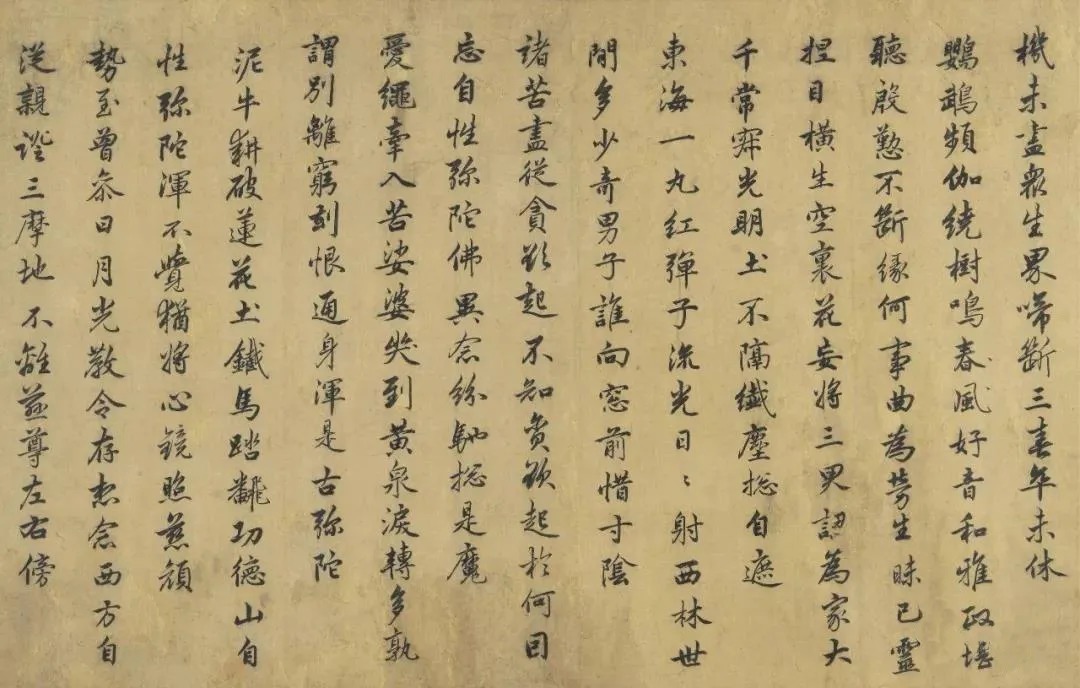 機未盡衆生界啼斷三春卒未休
鸚鵡頻伽繞樹鳴春風好音和雅政堪
聽殷懃不斷緣何事曲為勞生昧己靈
捏目橫生空裏花妄將三界認為家大
千常寂光明土不隔纖塵捴自遮
東海一丸紅彈子流光日〻射西林世
間多少奇男子誰向窓前惜寸陰
諸苦盡從貪欲起不知貪欲起於何因
忘自性弥陀佛異念紛馳捴是魔
愛繩牽入苦娑婆哭到黃泉淚轉多孰
謂別離窮到恨通身渾是古弥陀
泥牛耕破蓮花土鐵馬踏翻功德山自
性弥陀渾不覺猶將心鏡照慈顏
勢至曾參日月光教令存想念西方自
從親證三摩地不離慈尊左右傍